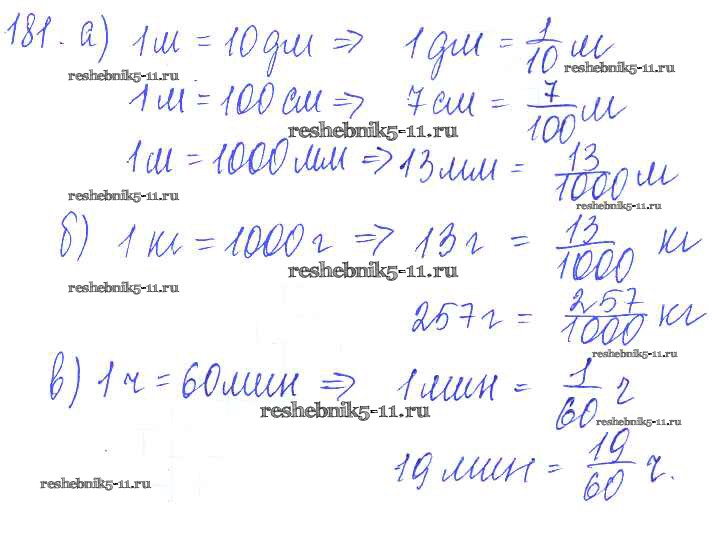 181. а) 1м = 10дм => 1дм = 1/10 м
reshebnik5-11.ru reshebnik5-11.ru
1м = 100см => 7см = 7/100 м
reshebnik5-11.ru
1м = 1000мм => 13мм = 13/1000 м
reshebnik5-11.ru reshebnik5-11.ru
б) 1кг = 1000г => 13г = 13/1000 кг
reshebnik5-11.ru
reshebnik5-11.ru
257г = 257/1000 кг
reshebnik5-11.ru
в) 1ч = 60мин => 1мин = 1/60 ч
reshebnik5-11.ru reshebnik5-11.ru
19мин = 19/60 ч.
reshebnik5-11.ru